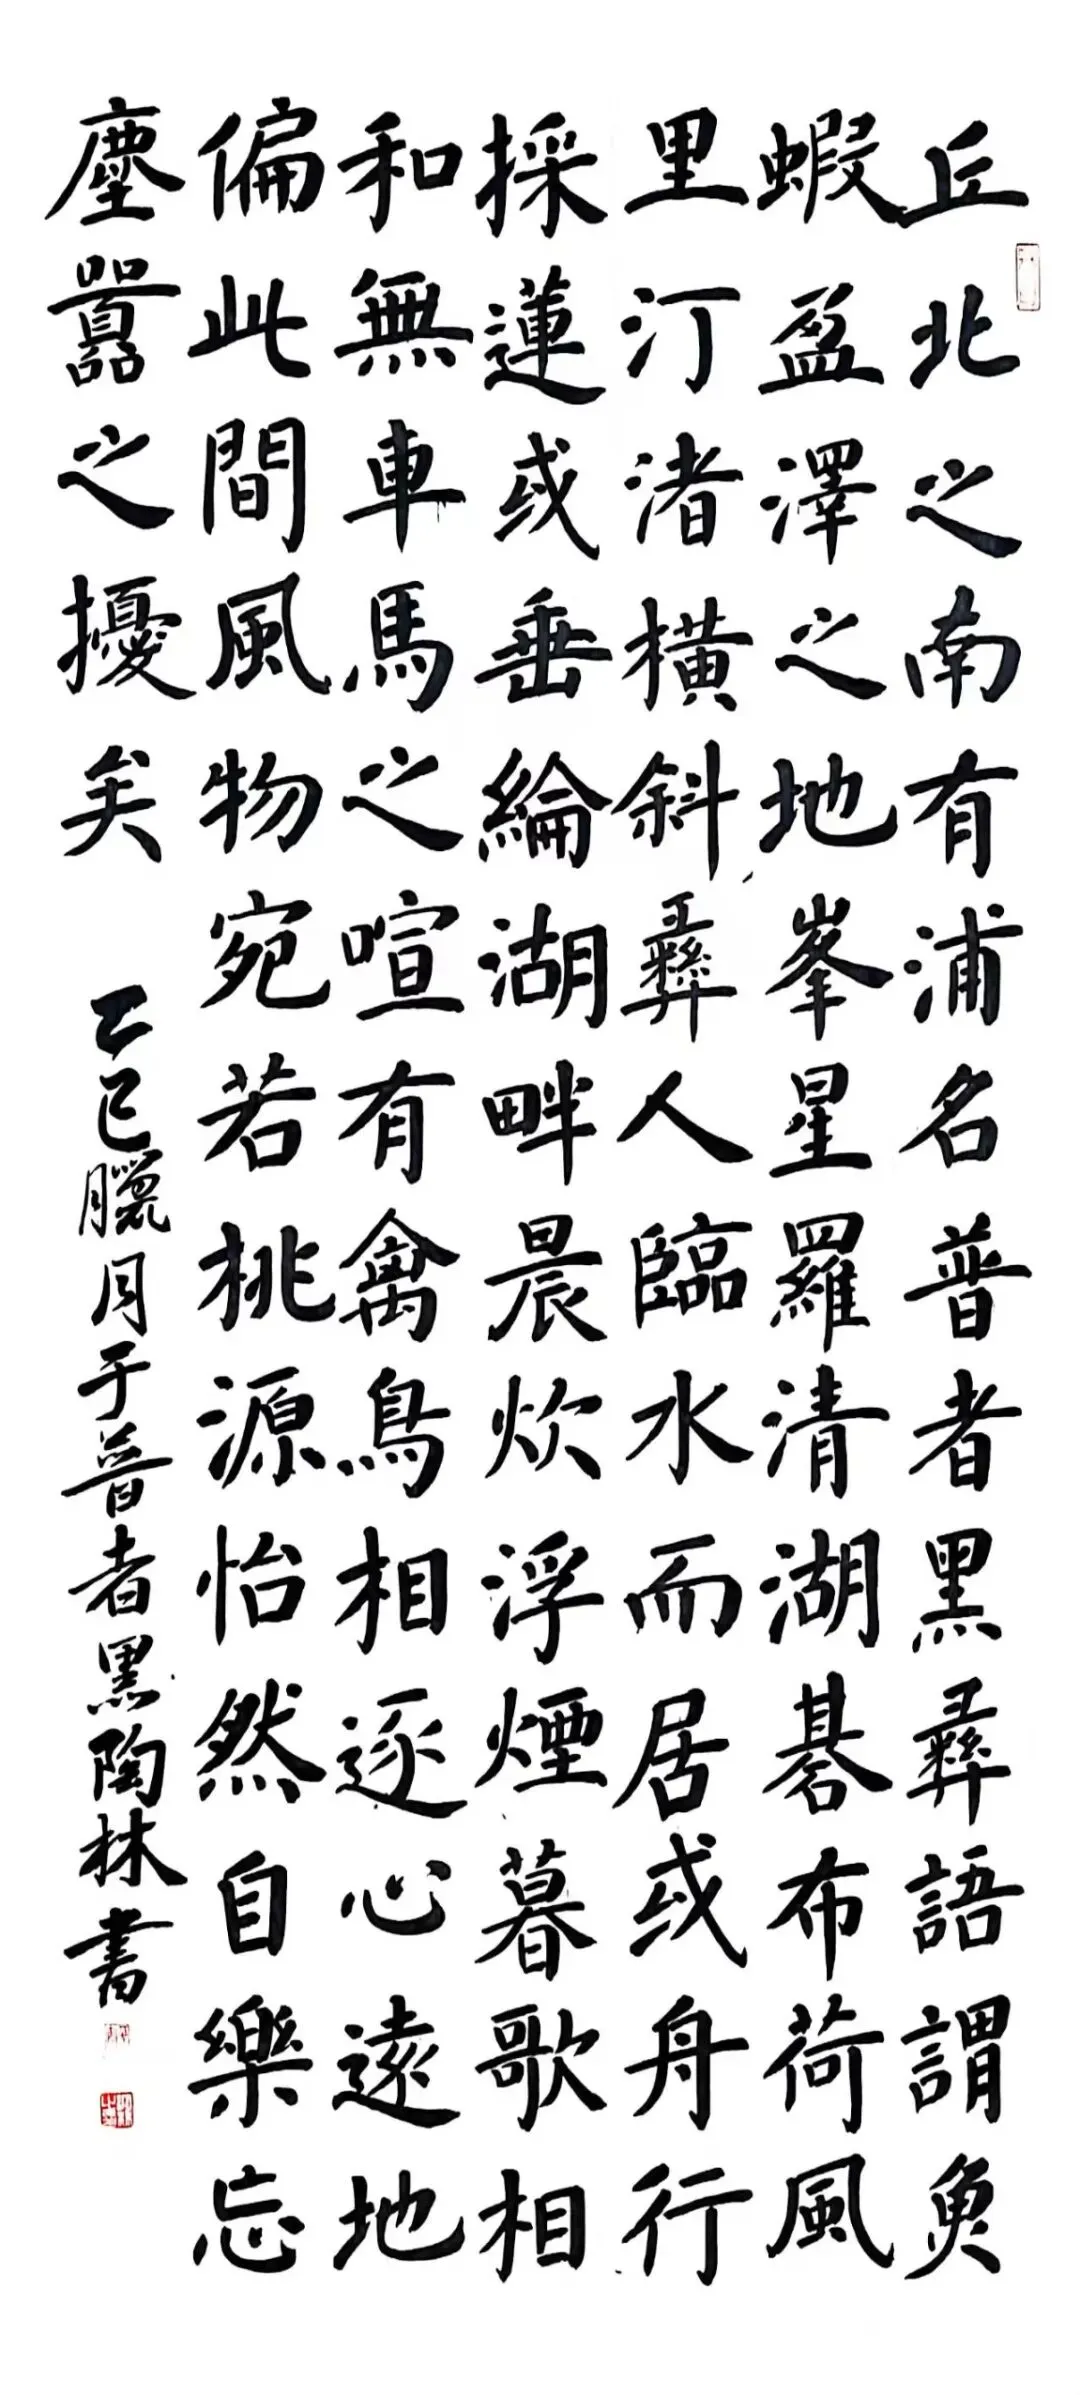 丘北之南有浦名普者黑彝語謂魚
蝦盈澤之地峯星羅清湖碁布荷風
里汀渚橫斜彝人臨水而居或舟行
採蓮或垂綸湖畔晨炊浮煙暮歌相
和無車馬之喧有禽鳥相逐心遠地
偏此間風物宛若桃源怡然自樂忘
塵囂之擾矣
乙巳臘月于普者黑陶林書